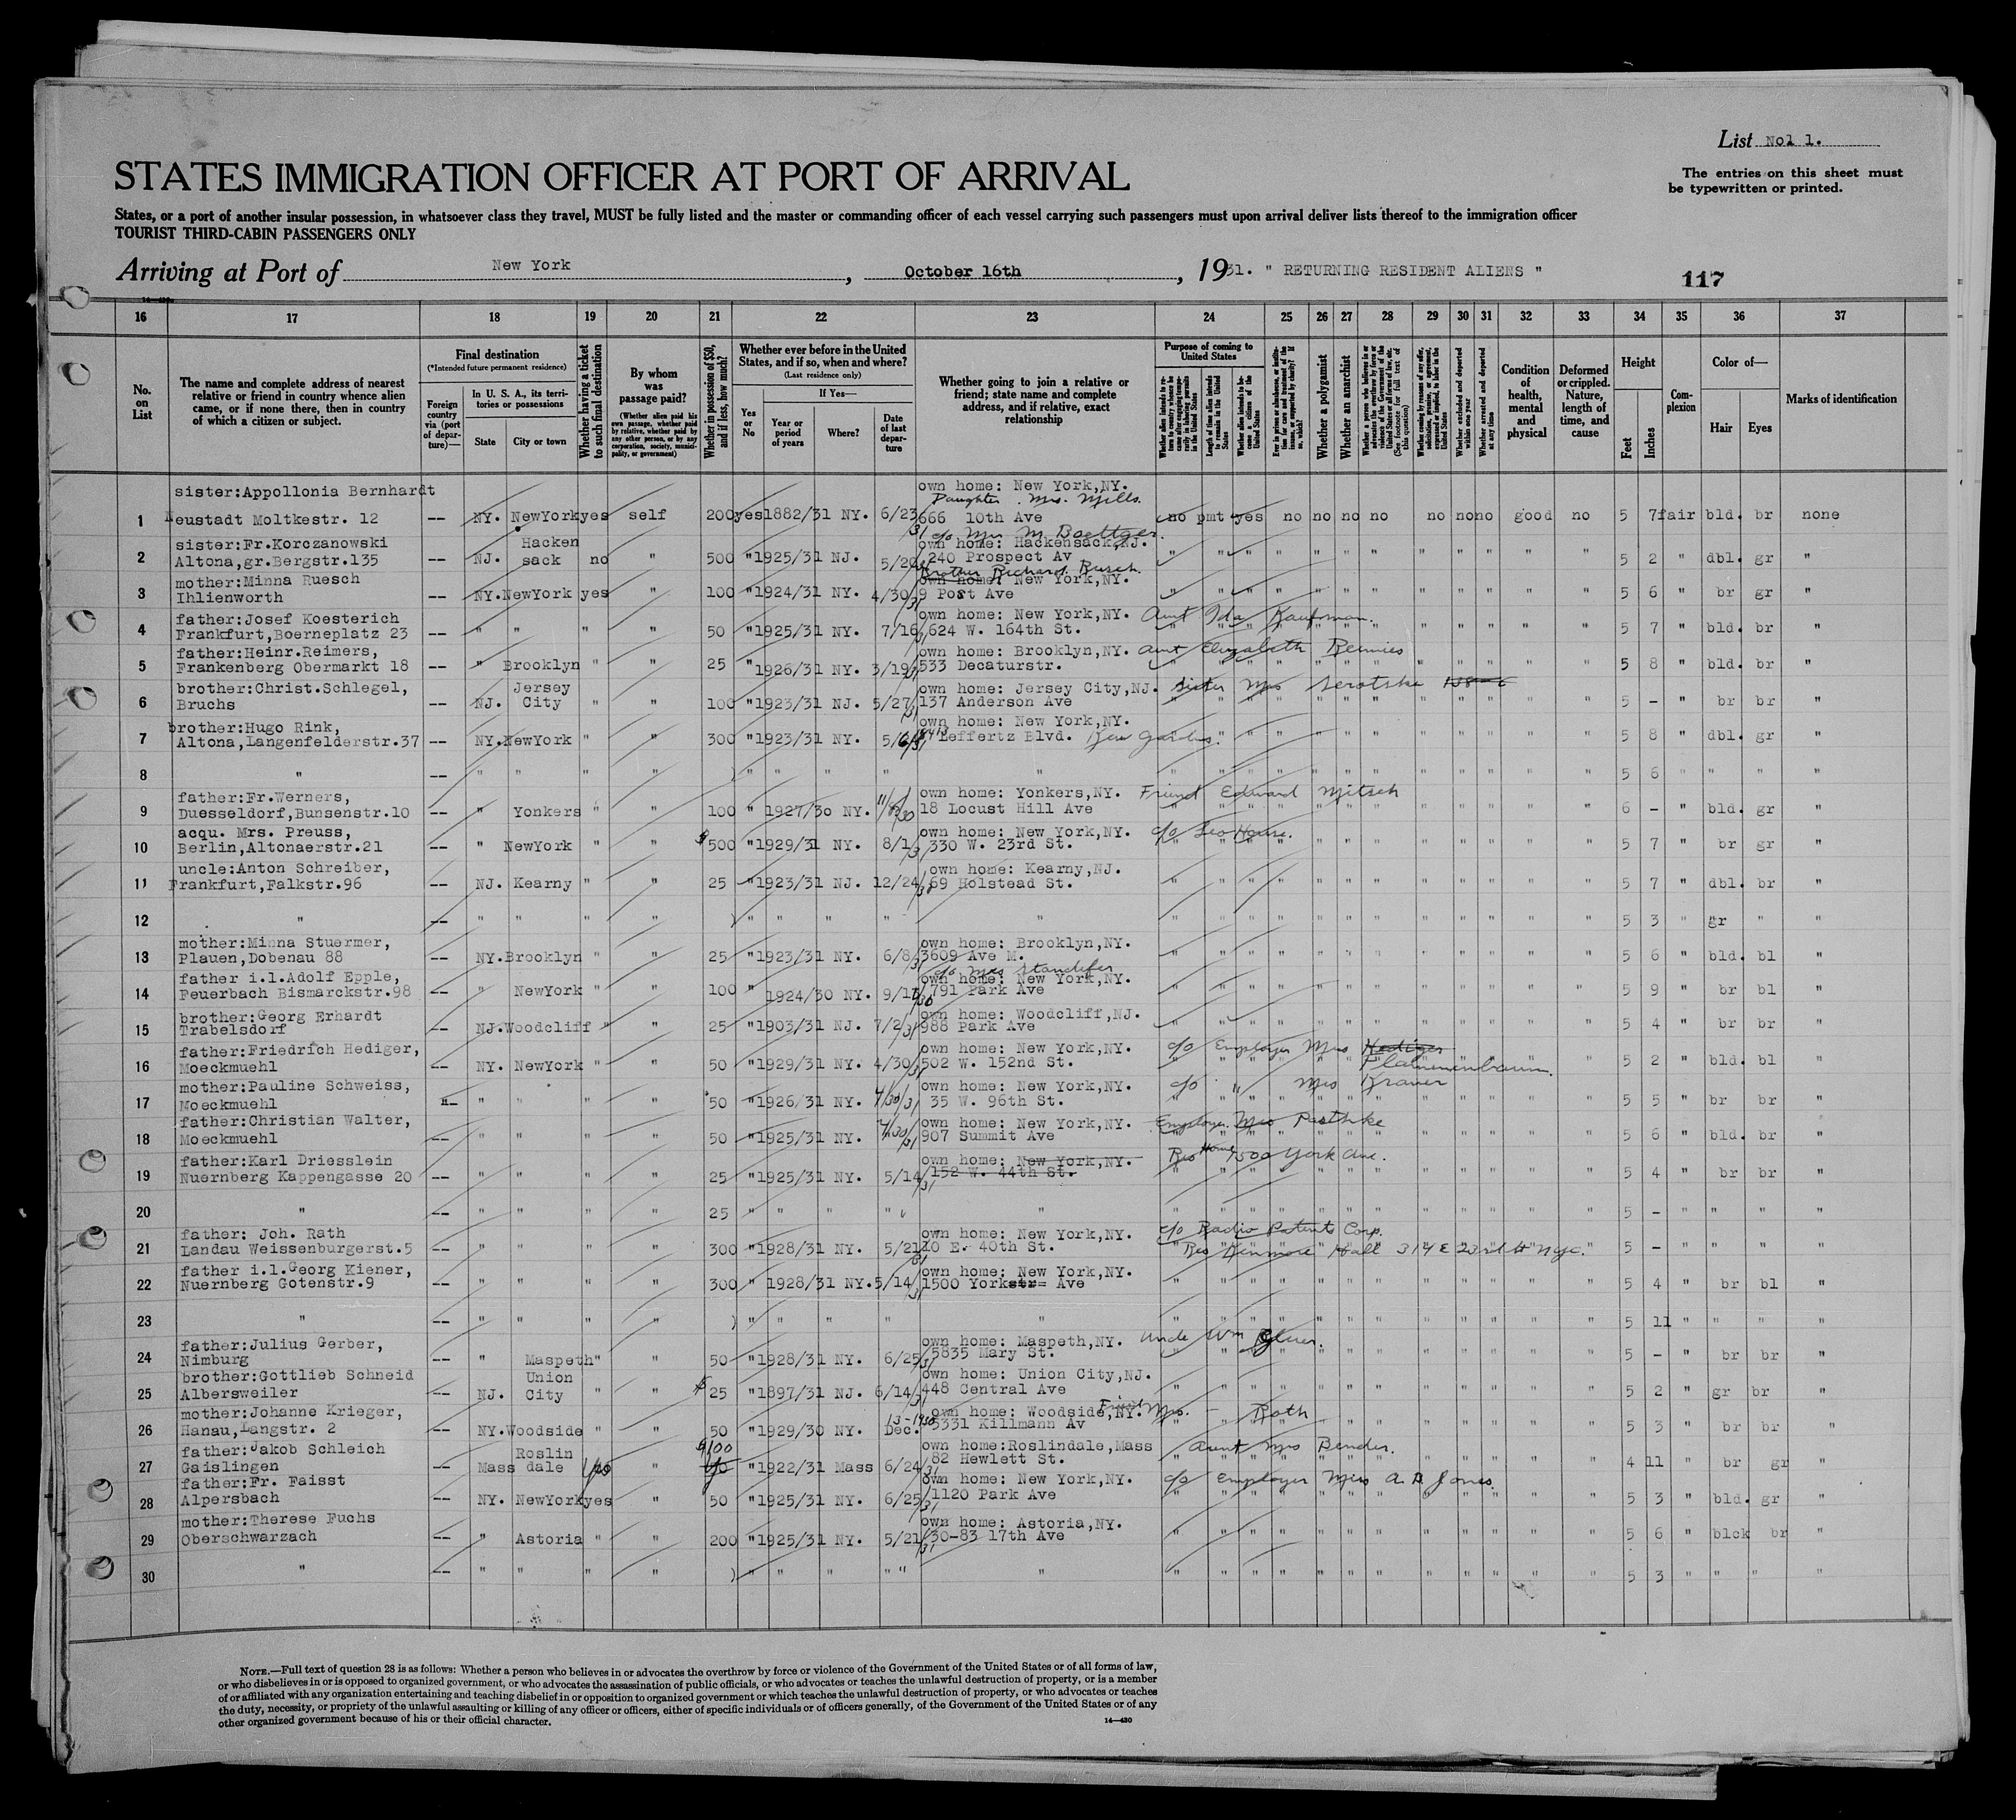 List No1 1.
STATES IMMIGRATION OFFICER AT PORT OF ARRIVAL
The entries on this sheet must
be typewritten or printed.
States, or a port of another insular possession, in whatsoever class they travel, MUST be fully listed and the master or commanding officer of each vessel carrying such passengers must upon arrival deliver lists thereof to the immigration officer
TOURIST THIRD-CABIN PASSENGERS ONLY
Arriving at Port of New York, October 16th, 1931. " RETURNING RESIDENT ALIENS " 117
16 17 18 19 20 21 22 23 24 25 26 27 28 29 30 31 32 33 34 35 36 37
No. on List
The name and complete address of nearest relative or friend in country whence alien came, or if none there, then in country of which a citizen or subject.
Final destination
(*Intended future permanent residence)
Foreign country via (port of departure)—
In U. S. A., its territories or possessions
State City or town
Whether having a ticket to such final destination
By whom was passage paid?
(Whether alien paid his own passage, whether paid by relative, whether paid by any other person, or by any corporation, society, municipality, or government)
Whether in possession of $50, and if less, how much?
Whether ever before in the United States, and if so, when and where?
(Last residence only)
Yes or No
If Yes—
Year or period of years Where? Date of last departure
Whether going to join a relative or friend; state name and complete address, and if relative, exact relationship
Purpose of coming to United States
Whether alien intends to return to country whence he came after engaging temporarily in laboring pursuits in the United States
Length of time alien intends to remain in the United States
Whether alien intends to become a citizen of the United States
Whether a polygamist
Whether an anarchist
Whether excluded and deported within one year
Whether arrested and deported at any time
Condition of health, mental and physical
Deformed or crippled. Nature, length of time, and cause
Height
Feet Inches
Complexion
Color of—
Hair Eyes
Marks of identification
sister:Appollonia Bernhardt own home: New York,NY.
Daughter. Mrs. Mills.
1 Neustadt Moltkestr. 12 -- NY. NewYork yes self 200 yes 1882/31 NY. 6/23/31 666 10th Ave no pmt yes no no no no no no no good no 5 7 fair bld. br none
c/o Mrs M. Boettger.
sister:Fr.Korczanowski Hacken own home: Hackensack,NJ.
2 Altona,gr.Bergstr.135 -- NJ. sack no " 500 " 1925/31 NJ. 5/20 240 Prospect Av " " " " " " " " " " " " 5 2 " dbl. gr "
Brother Richard Rusch.
mother:Minna Ruesch own home: New York,NY.
3 Ihlienworth -- NY. NewYork yes " 100 " 1924/31 NY. 4/30/31 9 Post Ave " " " " " " " " " " " " 5 6 " br gr "
father:Josef Koesterich own home: New York,NY. Aunt Ida Kaufman.
4 Frankfurt,Boerneplatz 23 -- " " " " 50 " 1925/31 NY. 7/16 624 W. 164th St. " " " " " " " " " " " " 5 7 " bld. br "
father:Heinr.Reimers, own home: Brooklyn,NY. Aunt Elizabeth
5 Frankenberg Obermarkt 18 -- " Brooklyn " " 25 " 1926/31 NY. 3/19/31 533 Decaturstr. " " " " " " " " " " " " 5 8 " bld. br "
brother:Christ.Schlegel, Jersey own home: Jersey City,NJ. Sister Mrs
6 Bruchs -- NJ. City " " 100 " 1923/31 NJ. 5/27/31 137 Anderson Ave " " " " " " " " " " " " 5 - " br br "
brother:Hugo Rink, own home: New York,NY.
7 Altona,Langenfelderstr.37 -- NY. NewYork " " 300 " 1923/31 NY. 5/6/31 8415 Leffertz Blvd. Kew Gardens. " " " " " " " " " " " " 5 8 " dbl. gr "
8 " -- " " " " ) " " " " " " " " " " " " " " " " " " 5 6 " " " "
father:Fr.Werners, own home: Yonkers,NY. Friend Edward Mitsch
9 Duesseldorf,Bunsenstr.10 -- " Yonkers " " 100 " 1927/30 NY. 11/8/30 18 Locust Hill Ave " " " " " " " " " " " " 6 - " bld. gr "
acqu. Mrs. Preuss, own home: New York,NY. c/o Leo House.
10 Berlin,Altonaerstr.21 -- " NewYork " " $500 " 1929/31 NY. 8/1/31 330 W. 23rd St. " " " " " " " " " " " " 5 7 " br gr "
uncle:Anton Schreiber, own home: Kearny,NJ.
11 Frankfurt,Falkstr.96 -- NJ. Kearny " " 25 " 1923/31 NJ. 12/24/30 69 Holstead St. " " " " " " " " " " " " 5 7 " dbl. br "
12 " -- " " " " ) " " " " " " " " " " " " " " " " " " 5 3 " gr " "
mother:Minna Stuermer, own home: Brooklyn,NY.
13 Plauen,Dobenau 88 -- NY. Brooklyn " " 25 " 1923/31 NY. 6/8/31 3609 Ave M. " " " " " " " " " " " " 5 6 " bld. bl "
c/o Mrs Standefer
father i.l.Adolf Epple, own home: New York,NY.
14 Feuerbach Bismarckstr.98 -- " NewYork " " 100 " 1924/30 NY. 9/17/30 791 Park Ave " " " " " " " " " " " " 5 9 " br bl "
brother:Georg Erhardt own home: Woodcliff,NJ.
15 Trabelsdorf -- NJ. Woodcliff " " 25 " 1903/31 NJ. 7/2/31 988 Park Ave " " " " " " " " " " " " 5 4 " br br "
father:Friedrich Hediger, own home: New York,NY. c/o Employer Mrs Hediger
16 Moeckmuehl -- NY. NewYork " " 50 " 1929/31 NY. 4/30/31 502 W. 152nd St. Flammenbaum. " " " " " " " " " " " " 5 2 " bld. bl "
mother:Pauline Schweiss, own home: New York,NY. c/o " Mrs Kramer
17 Moeckmuehl -- " " " " 50 " 1926/31 NY. 4/30/31 35 W. 96th St. " " " " " " " " " " " " 5 5 " br br "
father:Christian Walter, own home: New York,NY. Employer Mrs
18 Moeckmuehl -- " " " " 50 " 1925/31 NY. 4/30/31 907 Summit Ave " " " " " " " " " " " " 5 6 " bld. br "
father:Karl Driesslein own home: New York,NY. Res Home 1500 York Ave.
19 Nuernberg Kappengasse 20 -- " " " " 25 " 1925/31 NY. 5/14/31 152 W. 44th St. " " " " " " " " " " " " 5 4 " br br "
20 " -- " " " " 25 " " " " " 5 - " " " "
father: Joh. Rath own home: New York,NY. c/o Radio Patents Corp.
21 Landau Weissenburgerst.5 -- " " " " 300 " 1928/31 NY. 5/21/31 10 E. 40th St. Res Kenmore Hall 314 E 23rd St NYC. 5 - " " " "
father i.l.Georg Kiener, own home: New York,NY.
22 Nuernberg Gotenstr.9 -- " " " " 300 " 1928/31 NY. 5/14/31 1500 Yorkstr= Ave " " " " " " " " " " " " 5 4 " br bl "
23 " -- " " " " ) " " " " " " " " " " " " " " " " " " 5 11 " " " "
father:Julius Gerber, own home: Maspeth,NY. Uncle Wm
24 Nimburg -- " Maspeth " " 50 " 1928/31 NY. 6/25/31 5835 Mary St. " " " " " " " " " " " " 5 - " br br "
brother:Gottlieb Schneid Union own home: Union City,NJ.
25 Albersweiler -- NJ. City " " $25 " 1897/31 NJ. 6/14/31 448 Central Ave " " " " " " " " " " " " 5 2 " gr br "
mother:Johanne Krieger, own home: Woodside,NY. Friend Mrs. - Roth
26 Hanau,Langstr. 2 -- NY. Woodside " " 50 " 1929/30 NY. Dec. 13-1930 5331 Killmann Av " " " " " " " " " " " " 5 3 " br br "
father:Jakob Schleich Roslin $100 own home:Roslindale,Mass Aunt Mrs Bender.
27 Gaislingen -- Mass dale yes " 50 " 1922/31 Mass 6/24/31 82 Hewlett St. " " " " " " " " " " " " 4 11 " br gr "
father:Fr. Faisst own home: New York,NY. c/o Employer Miss A. D. Jones.
28 Alpersbach -- NY. NewYork yes " 50 " 1925/31 NY. 6/25/31 1120 Park Ave " " " " " " " " " " " " 5 3 " bld. gr "
mother:Therese Fuchs own home: Astoria,NY.
29 Oberschwarzach -- " Astoria " " 200 " 1925/31 NY. 5/21/31 30-83 17th Ave " " " " " " " " " " " " 5 6 " blck br "
30 " -- " " " " ) " " " " " " " " " " " " " " " " " " 5 3 " " " "
NOTE.—Full text of question 28 is as follows: Whether a person who believes in or advocates the overthrow by force or violence of the Government of the United States or of all forms of law,
or who disbelieves in or is opposed to organized government, or who advocates the assassination of public officials, or who advocates or teaches the unlawful destruction of property, or is a member
of or affiliated with any organization entertaining and teaching disbelief in or opposition to organized government or which teaches the unlawful destruction of property, or who advocates or teaches
the duty, necessity, or propriety of the unlawful assaulting or killing of any officer or officers, either of specific individuals or of officers generally, of the Government of the United States or of any
other organized government because of his or their official character.
14—430